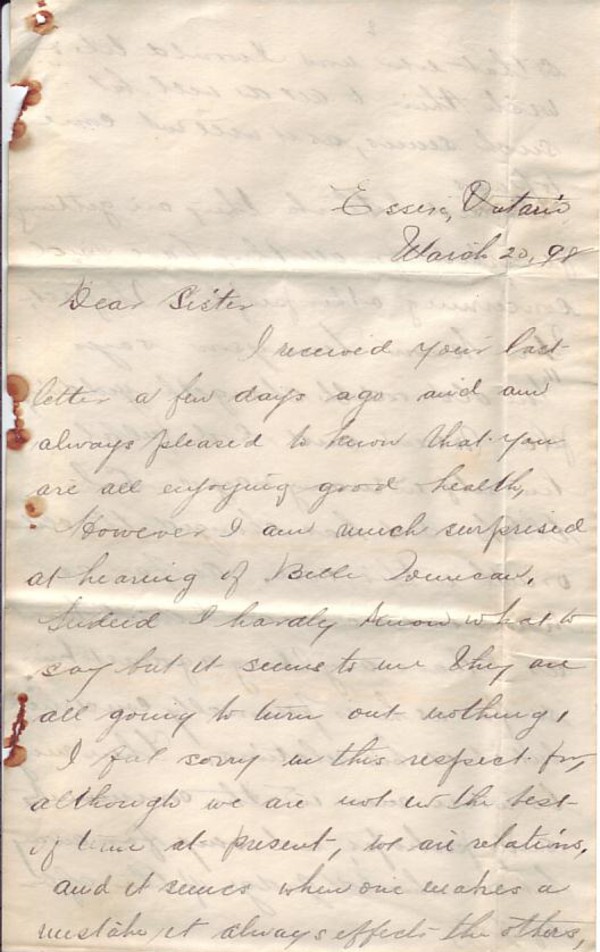 Essex, Ontario
March 20, 98
Dear Sister
I received your last
letter a few days ago and am
always pleased to know that you
are all enjoying good health,
However I am much surprised
at hearing of Belle Duncan.
Indeed I hardly know what to
say but it seems to me they are
all going to turn out nothing,
I feel sorry in this respect for,
although we are not in the best
of time at present, we are relations,
and it seems when one makes a
mistake it always effects the others,